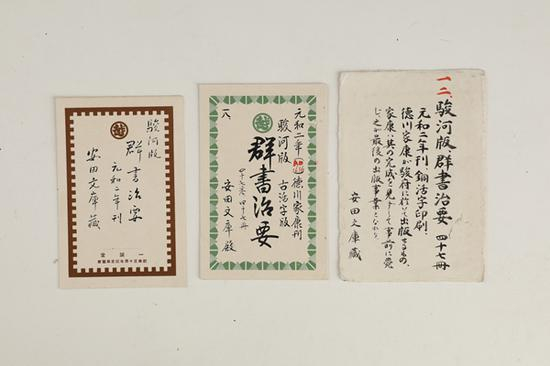 一二、駿河版 群書治要 四十七冊
元和二年刊 銅活字印刷、
徳川家康が駿府に於いて出版せるもの、
家康は其の完成を見ずして事前に薨
じ、之が最後の出版事業となれり
安田文庫藏
元和二年 徳川家康刊
駿河版 古活字版
群書治要
四十七巻 四十七冊
一八
安田文庫殿
駿河版
群書治要
元和二年刊
安田文庫藏